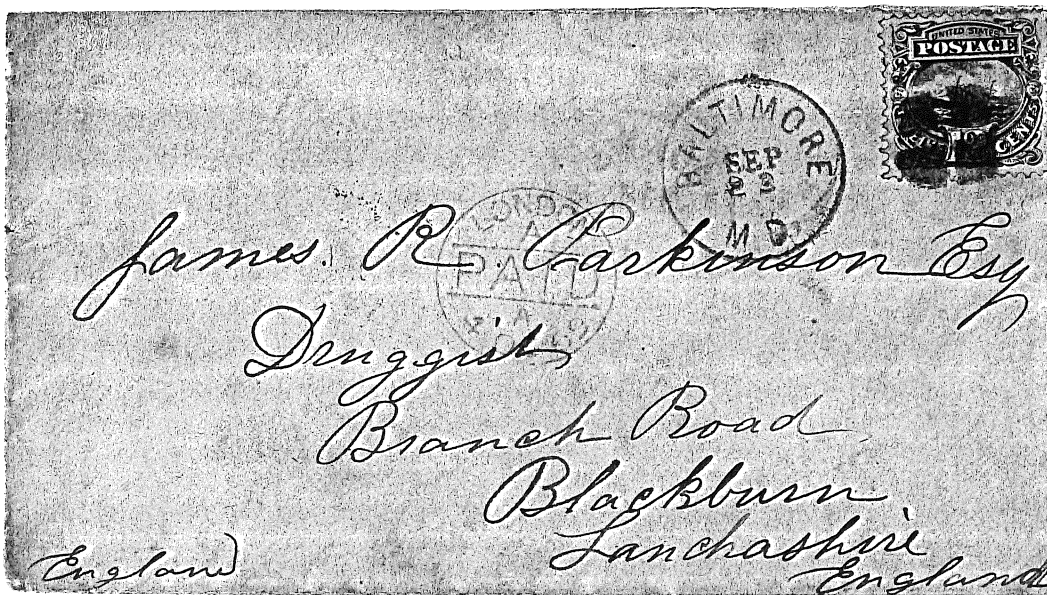 UNITED STATES
POSTAGE
12
CENTS
BALTIMORE
SEP
22
MD.
LONDON
A
PAID
James. R. Parkinson Esq
Druggist
Branch Road
Blackburn
Lanchashire
England
England